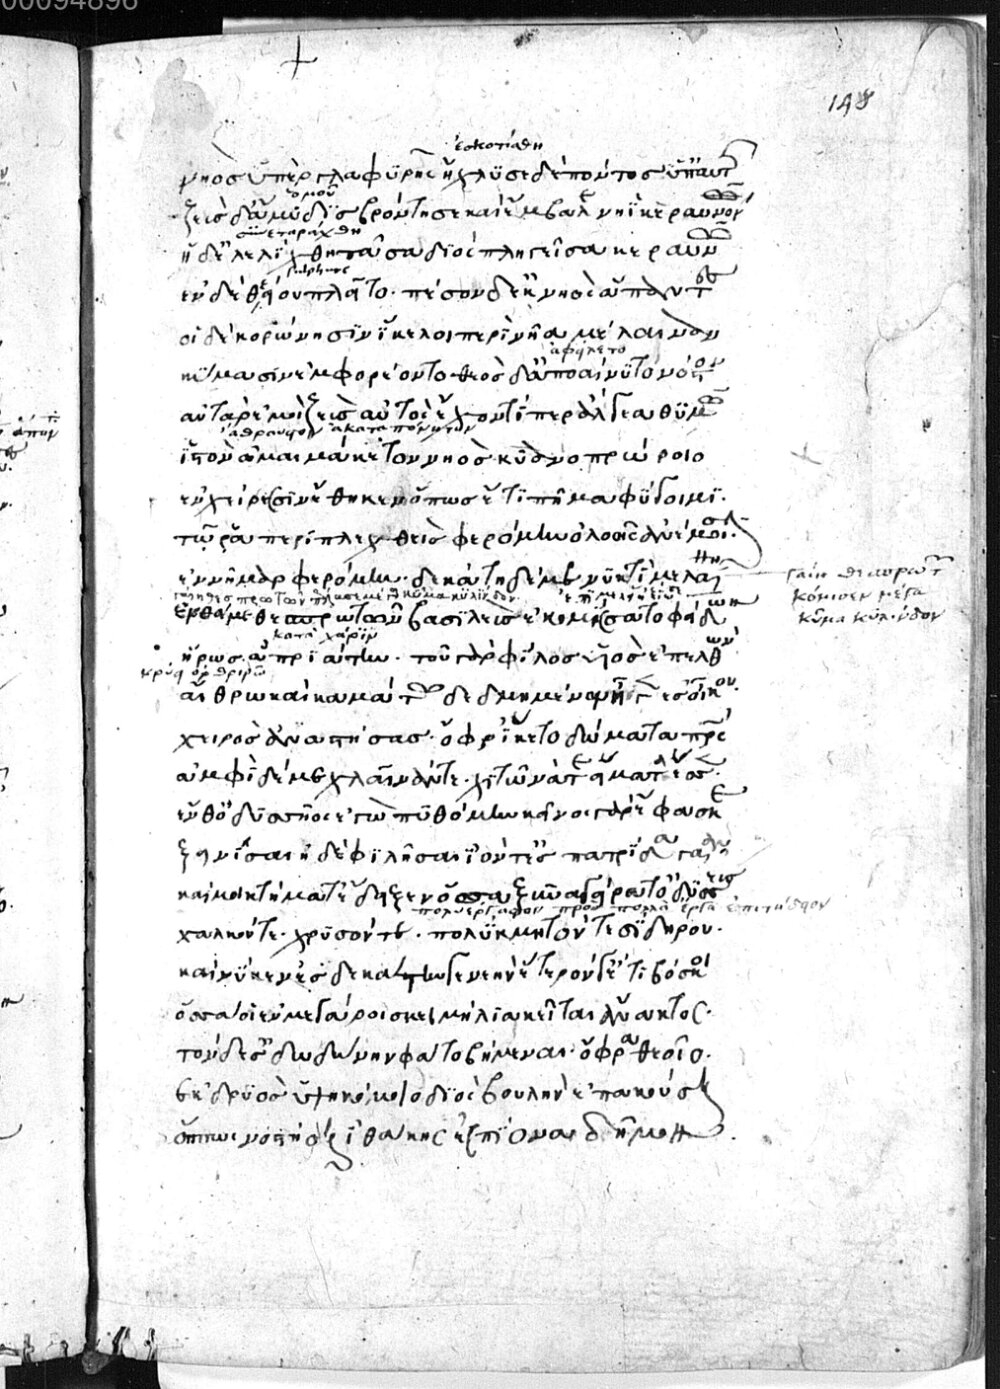 148
ἐσκοτίσθη
νηὸς ὕπερ γλαφυρῆς ἤχλυσε δὲ πόντος ὑπ' αὐτῆς
ὁμοῦ
ζεὺς δ' ἄμυδις βρόντησε καὶ ἔμβαλε νηῒ κεραυνόν
συνεταράχθη
ἡ δ' ἐλελίχθη πᾶσα διὸς πληγεῖσα κεραυνῷ
sulphure
ἐν δὲ θεείου πλῆτο· πέσον δ' ἐκ νηὸς ἅπαντες
οἱ δὲ κορώνησιν ἴκελοι περὶ νῆα μέλαιναν
ἀφείλετο
κύμασιν ἐμφορέοντο θεὸς δ' ἀποαίνυτο νόστον
αὐτὰρ ἐμοὶ ζεὺς αὐτὸς ἔχοντί περ ἄλγεα θυμῷ
ἄθραυστον ἀκαταπόνητον
ἱστὸν ἀμαιμάκετον νηὸς κυανοπρώροιο
ἐν χείρεσσιν ἔθηκεν ὅπως ἔτι πῆμα φύγοιμι.
τῶ ῥα περιπλεχθεὶς φερόμην ὀλοοῖς ἀνέμοισι.
ἐννῆμαρ φερόμην· δεκάτη δέ με νυκτὶ μελαίνη
γαίη θεσπρωτῶν
κόμισεν μέγα
κῦμα κύλινδον
γαίη θεσπρωτῶν πέλασεν μέγα κῦμα κυλίνδον
ἔνθα με θεσπρωτῶν βασιλεὺς ἐκομίσσατο φείδων
κατὰ χάριν
ἥρως ἀπριάτην· τοῦ γὰρ φίλος υἱὸς ἐπελθών
αἴθρω καὶ καμάτω δεδμημένον ἦγεν ἐς οἶκον.
χειρὸς ἀναστήσας· ὄφρ' ἵκετο δώματα πατρός
ἀμφὶ δέ με χλαῖνάν τε· χιτῶνά τε εἵματα ἕσσεν.
ἔνθ' ὀδυσῆος ἐγὼ πυθόμην κεῖνος γὰρ ἔφασκε
ξεινίσαι ἠδὲ φιλῆσαι ἰόντ' ἐς πατρίδα γαῖαν
καί μοι κτήματ' ἔδειξεν ὅσσα ξυναγείρατ' ὀδυσσεύς
πολυέργαστον πρὸς πολλὰ ἔργα ἐπιτήδειον
χαλκόν τε· χρυσόν τε· πολύκμητόν τε σίδηρον.
καί νύ κεν ἐς δεκάτην γενεὴν ἕτερόν γ' ἔτι βόσκοι
ὅσσα οἱ ἐν μεγάροις κειμήλια κεῖται ἄνακτος.
τὸν δ' ἐς δωδώνην φάτο βήμεναι· ὄφρα θεοῖο.
ἐκ δρυὸς ὑψικόμοιο διὸς βουλὴν ἐπακούσῃ
ὅππως νοστήσει ἰθάκης ἐς πίονα δῆμον.